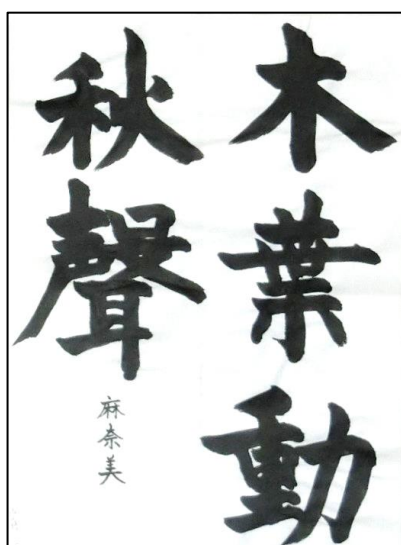 木葉動
秋聲
麻奈美